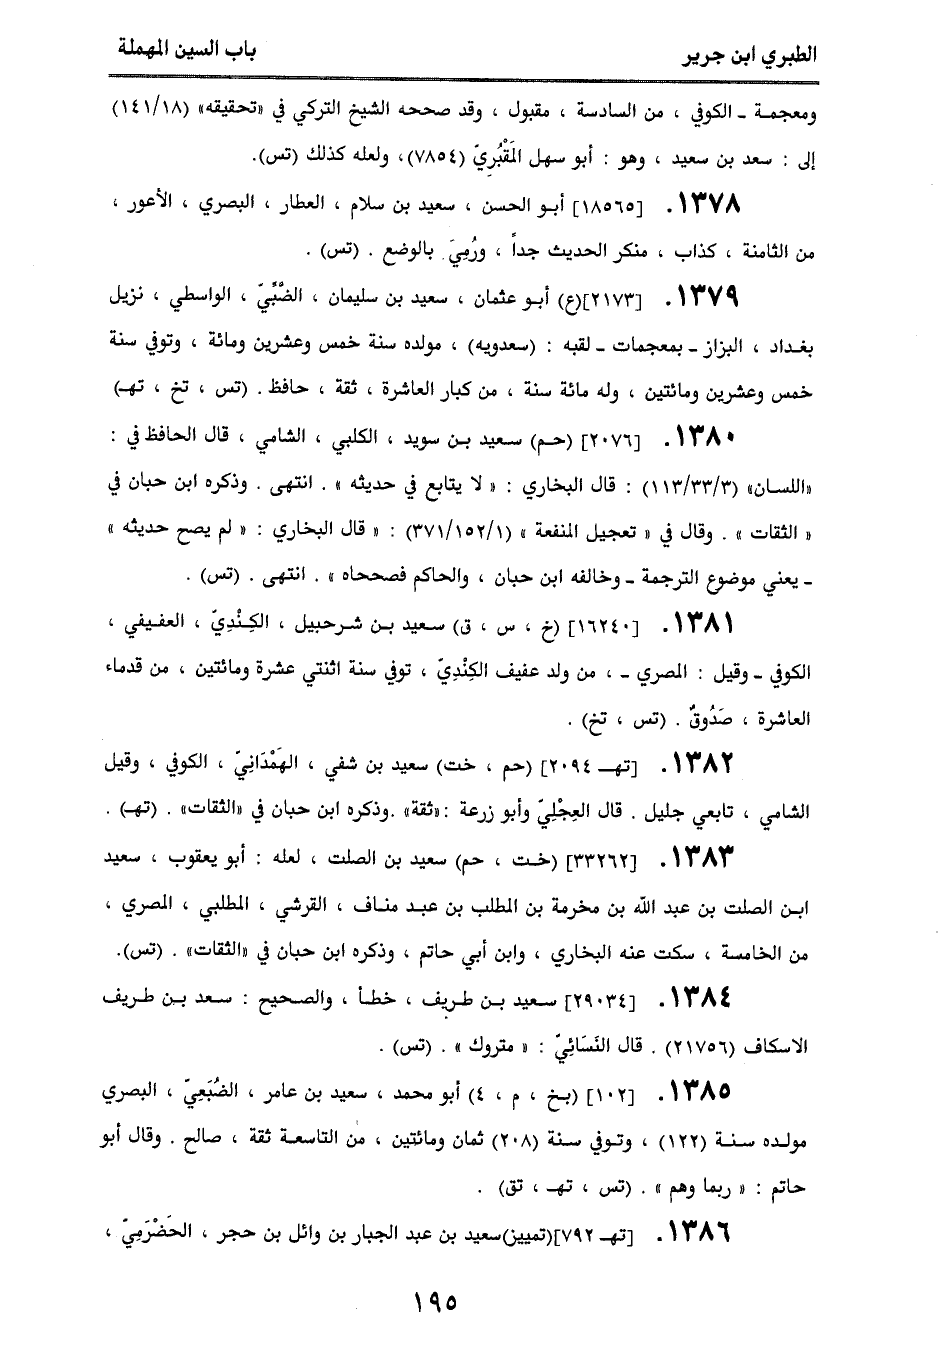 الطبري ابن جرير
باب السين المهملة
ومعجمة ـ الكوفي ، من السادسة ، مقبول ، وقد صححه الشيخ التركي في «تحقيقه» (١٤١/١٨)
إلى : سعد بن سعيد ، وهو : أبو سهل المَقْبُريّ (٧٨٥٤)، ولعله كذلك (تس).
١٣٧٨. [١٨٥٦٥] أبو الحسن ، سعيد بن سلام ، العطار ، البصري ، الأعور ،
من الثامنة ، كذاب ، منكر الحديث جداً ، ورُمِيَ بالوضع . (تس) .
١٣٧٩. [٢١٧٣](ع) أبو عثمان ، سعيد بن سليمان ، الضَّبِّيّ ، الواسطي ، نزيل
بغداد ، البزاز ـ بمعجمات ـ لقبه : (سعدويه) ، مولده سنة خمس وعشرين ومائة ، وتوفي سنة
خمس وعشرين ومائتين ، وله مائة سنة ، من كبار العاشرة ، ثقة ، حافظ . (تس ، تخ ، تهـ)
١٣٨٠. [٢٠٧٦] (حم) سعيد بن سويد ، الكلبي ، الشامي ، قال الحافظ في :
«اللسان» (١١٣/٣٣/٣) : قال البخاري : « لا يتابع في حديثه » . انتهى . وذكره ابن حبان في
« الثقات » . وقال في « تعجيل المنفعة » (٣٧١/١٥٢/١) : « قال البخاري : « لم يصح حديثه »
ـ يعني موضوع الترجمة ـ وخالفه ابن حبان ، والحاكم فصححاه » . انتهى . (تس) .
١٣٨١. [١٦٢٤٠] (خ ، س ، ق) سعيد بن شرحبيل ، الكِنْدِيّ ، العفيفي ،
الكوفي ـ وقيل : المصري ـ ، من ولد عفيف الكِنْدِيّ ، توفي سنة اثنتي عشرة ومائتين ، من قدماء
العاشرة ، صَدُوقٌ . (تس ، تخ) .
١٣٨٢. [تهـ ٢٠٩٤] (حم ، خت) سعيد بن شفي ، الهَمْدَانِيّ ، الكوفي ، وقيل
الشامي ، تابعي جليل . قال العِجْلِيّ وأبو زرعة :«ثقة» .وذكره ابن حبان في «الثقات» . (تهـ) .
١٣٨٣. [٣٣٢٦٢] (خت ، حم) سعيد بن الصلت ، لعله : أبو يعقوب ، سعيد
ابن الصلت بن عبد الله بن مخرمة بن المطلب بن عبد مناف ، القرشي ، المطلبي ، المصري ،
من الخامسة ، سكت عنه البخاري ، وابن أبي حاتم ، وذكره ابن حبان في «الثقات» . (تس).
١٣٨٤. [٢٩٠٣٤] سعيد بن طريف ، خطأ ، والصحيح : سعد بن طريف
الاسكاف (٢١٧٥٦) . قال النَسَائِيّ : « متروك » . (تس) .
١٣٨٥. [١٠٢] (بخ ، م ، ٤) أبو محمد ، سعيد بن عامر ، الضُبَعِيّ ، البصري
مولده سنة (١٢٢) ، وتوفي سنة (٢٠٨) ثمان ومائتين ، من التاسعة ثقة ، صالح . وقال أبو
حاتم : « ربما وهم » . (تس ، تهـ ، تق) .
١٣٨٦. [تهـ ٧٩٢](تمييز)سعيد بن عبد الجبار بن وائل بن حجر ، الحَضْرَمِيّ ،
١٩٥